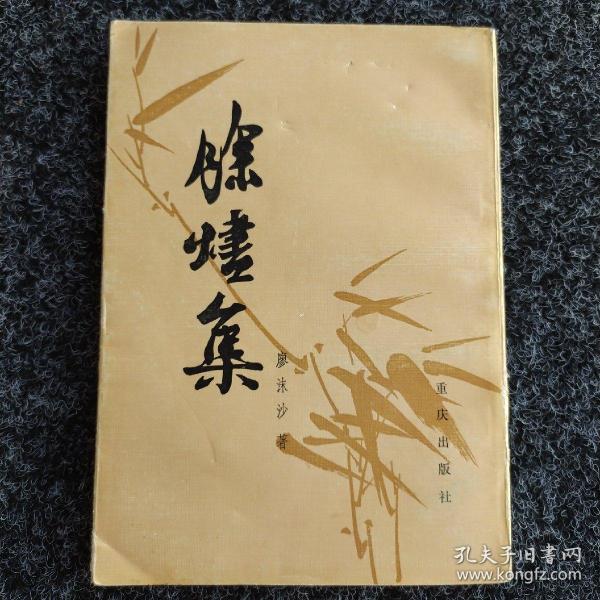 餘燼集
廖沫沙著
重庆出版社
孔夫子旧書网
www.kongfz.com